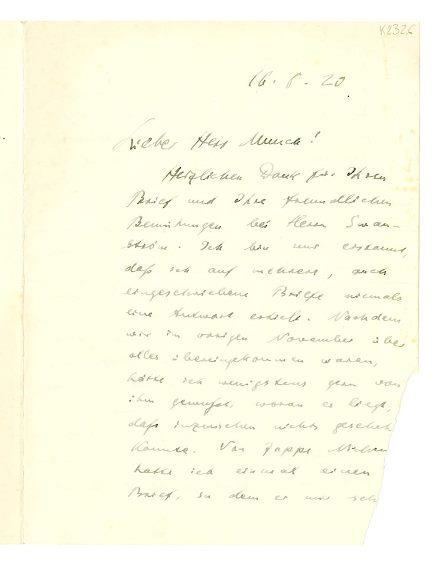 K2326
16. 8. 20
Lieber Herr Munch!
Herzlichen Dank für Ihren
Brief und Ihre freundlichen
Bemühungen bei Herrn Swan-
ström. Ich bin nur erstaunt,
daß ich auf mehrere, auch
eingeschriebene Briefe niemals
eine Antwort erhielt. Nachdem
wir im vorigen November über
alles übereingekommen waren,
hätte ich wenigstens gern von
ihm gewußt, woran es liegt,
daß inzwischen nichts geschehen
konnte. Von Jappe
hatte ich einmal einen
Brief, in dem er mir